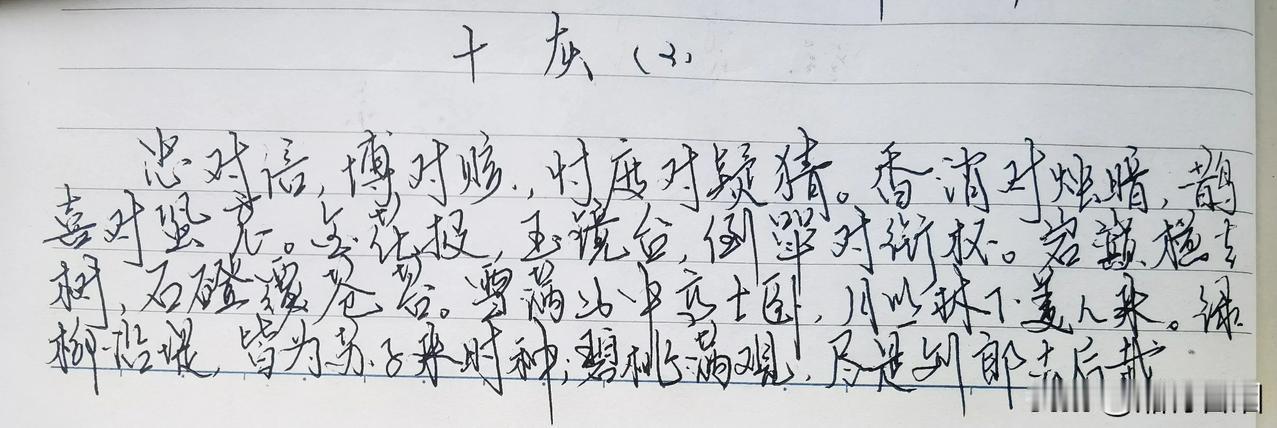 十灰(2)
忠对信,博对赅,忖度对疑猜。香消对烛暗,鹊
喜对蛩哀。金花报,玉镜台,倒斝对衔杯。岩巅横老
树,石磴覆苍苔。雪满山中高士卧,月明林下美人来。绿
柳沿堤,皆为苏子来时种;碧桃满观,尽是刘郎去后栽